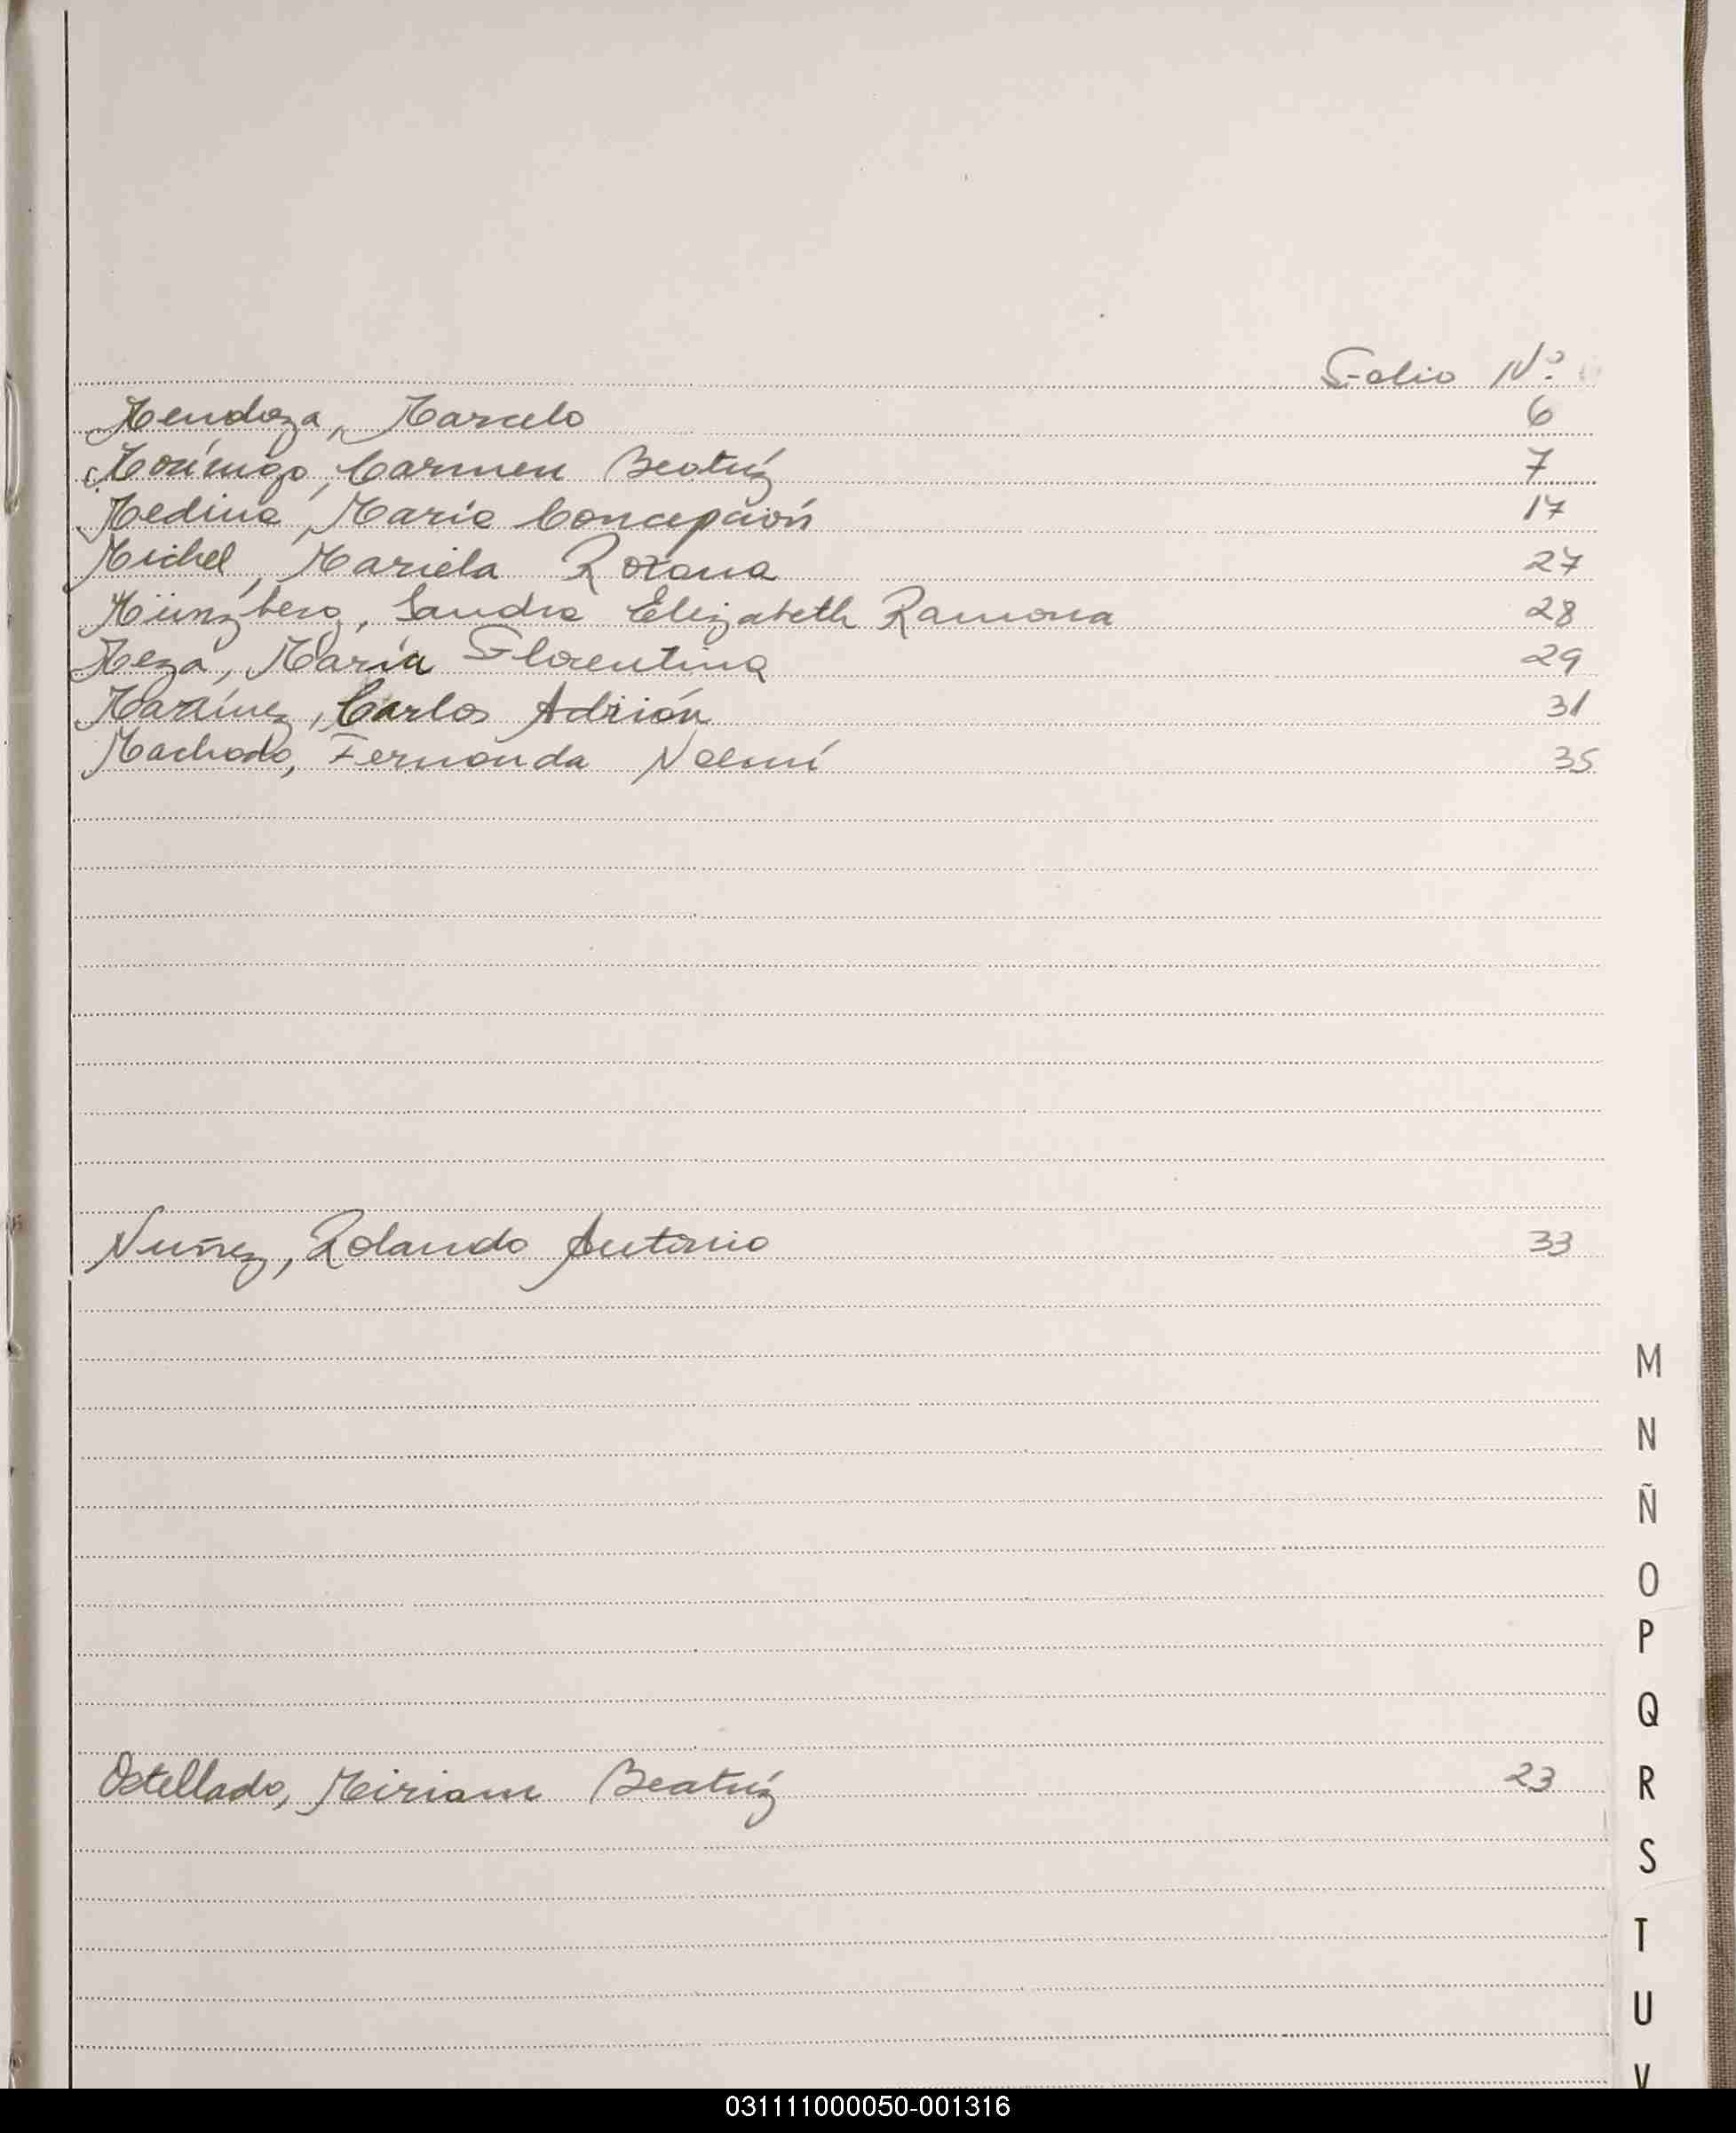 Folio Nº
Mendoza, Marcelo 6
Morínigo, Carmen Beatríz 7
Medina, María Concepción 17
Michel, Mariela Roxana 27
Münzberg, Sandra Elizabeth Ramona 28
Meza, María Florentina 29
Maraínez, Carlos Adrión 31
Machado, Fernanda Noemí 35
Nuñez, Rolando Antonio 33
M
N
Ñ
O
P
Q
Ostellado, Miriam Beatríz 23
R
S
T
U
V
031111000050-001316